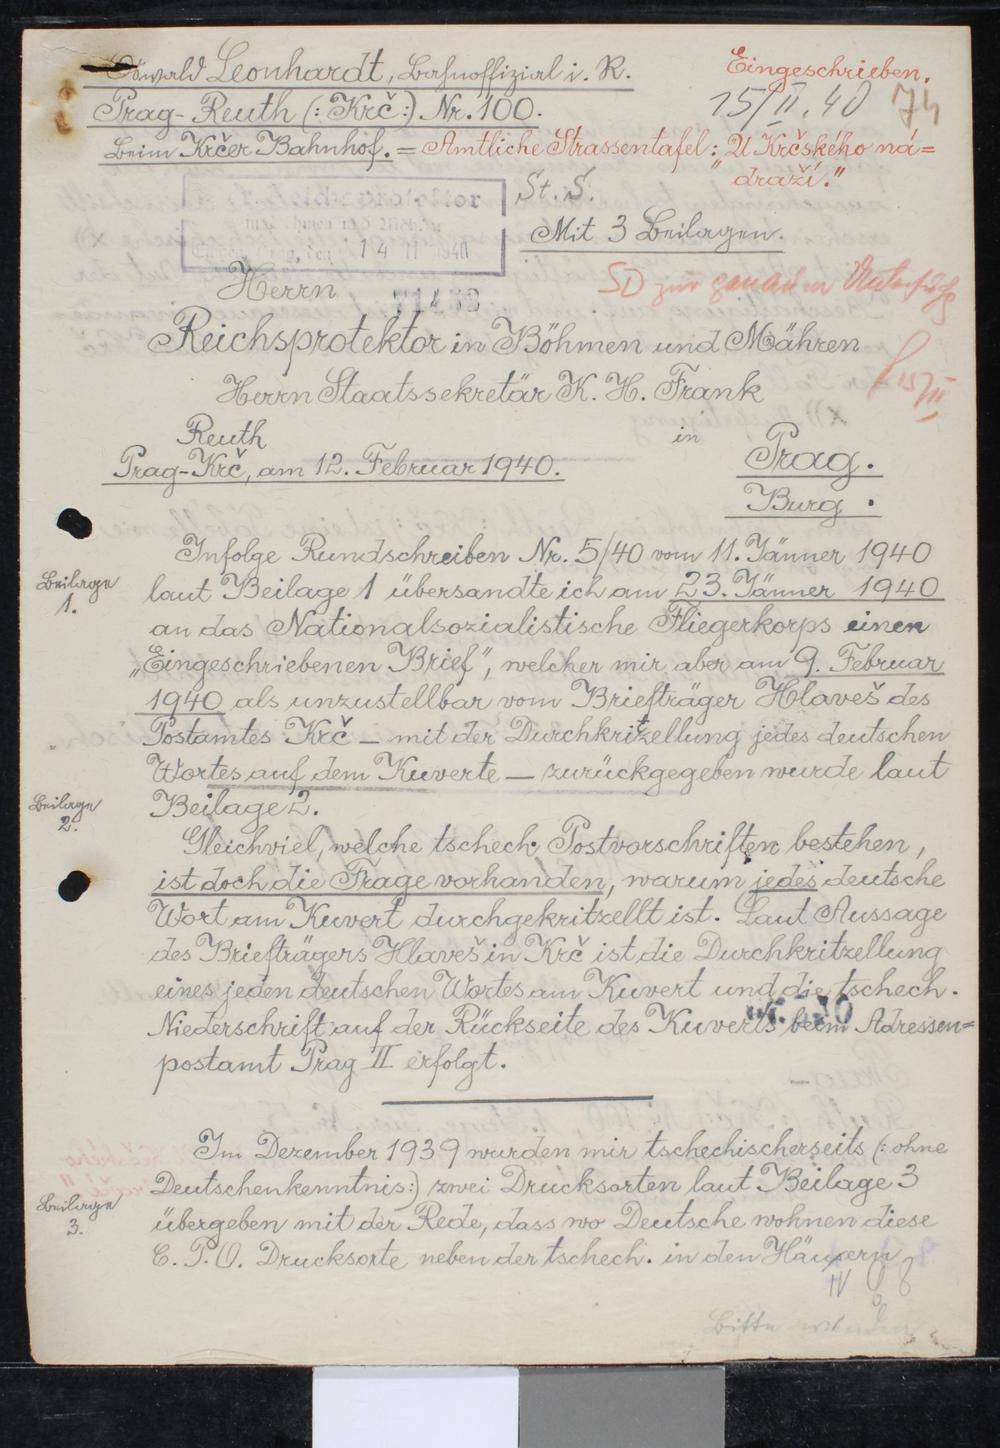 Oswald Leonhardt, Bahnoffizial i. R.
Eingeschrieben.
Prag-Reuth (: Krč :) Nr. 100.
15/II. 40 74
beim Krčer Bahnhof. = Amtliche Strassentafel: „U Krčského ná=
draží."
St. S.
Mit 3 Beilagen.
14 II 1940
Herrn
SD zur genauen
Reichsprotektor in Böhmen und Mähren
15/II
Herrn Staatssekretär K. H. Frank
Reuth
in
Prag-Krč, am 12. Februar 1940.
Prag.
Burg.
Infolge Rundschreiben Nr. 5/40 vom 11. Jänner 1940
Beilage
1.
laut Beilage 1 übersandte ich am 23. Jänner 1940
an das Nationalsozialistische Fliegerkorps einen
„Eingeschriebenen Brief", welcher mir aber am 9. Februar
1940 als unzustellbar vom Briefträger Hlaveš des
Postamtes Krč – mit der Durchkritzellung jedes deutschen
Wortes auf dem Kuverte – zurückgegeben wurde laut
Beilage
2.
Beilage 2.
Gleichviel, welche tschech. Postvorschriften bestehen,
ist doch die Frage vorhanden, warum jedes deutsche
Wort am Kuvert durchgekritzellt ist. Laut Aussage
des Briefträgers Hlaveš in Krč ist die Durchkritzellung
eines jeden deutschen Wortes am Kuvert und die tschech.
Niederschrift auf der Rückseite des Kuverts beim Adressen=
postamt Prag II erfolgt.
Im Dezember 1939 wurden mir tschechischerseits (: ohne
Deutschenkenntnis :) zwei Drucksorten laut Beilage 3
Beilage
3.
übergeben mit der Rede, dass wo Deutsche wohnen diese
C. P. O. Drucksorte neben der tschech. in den Häusern
Bitte wenden